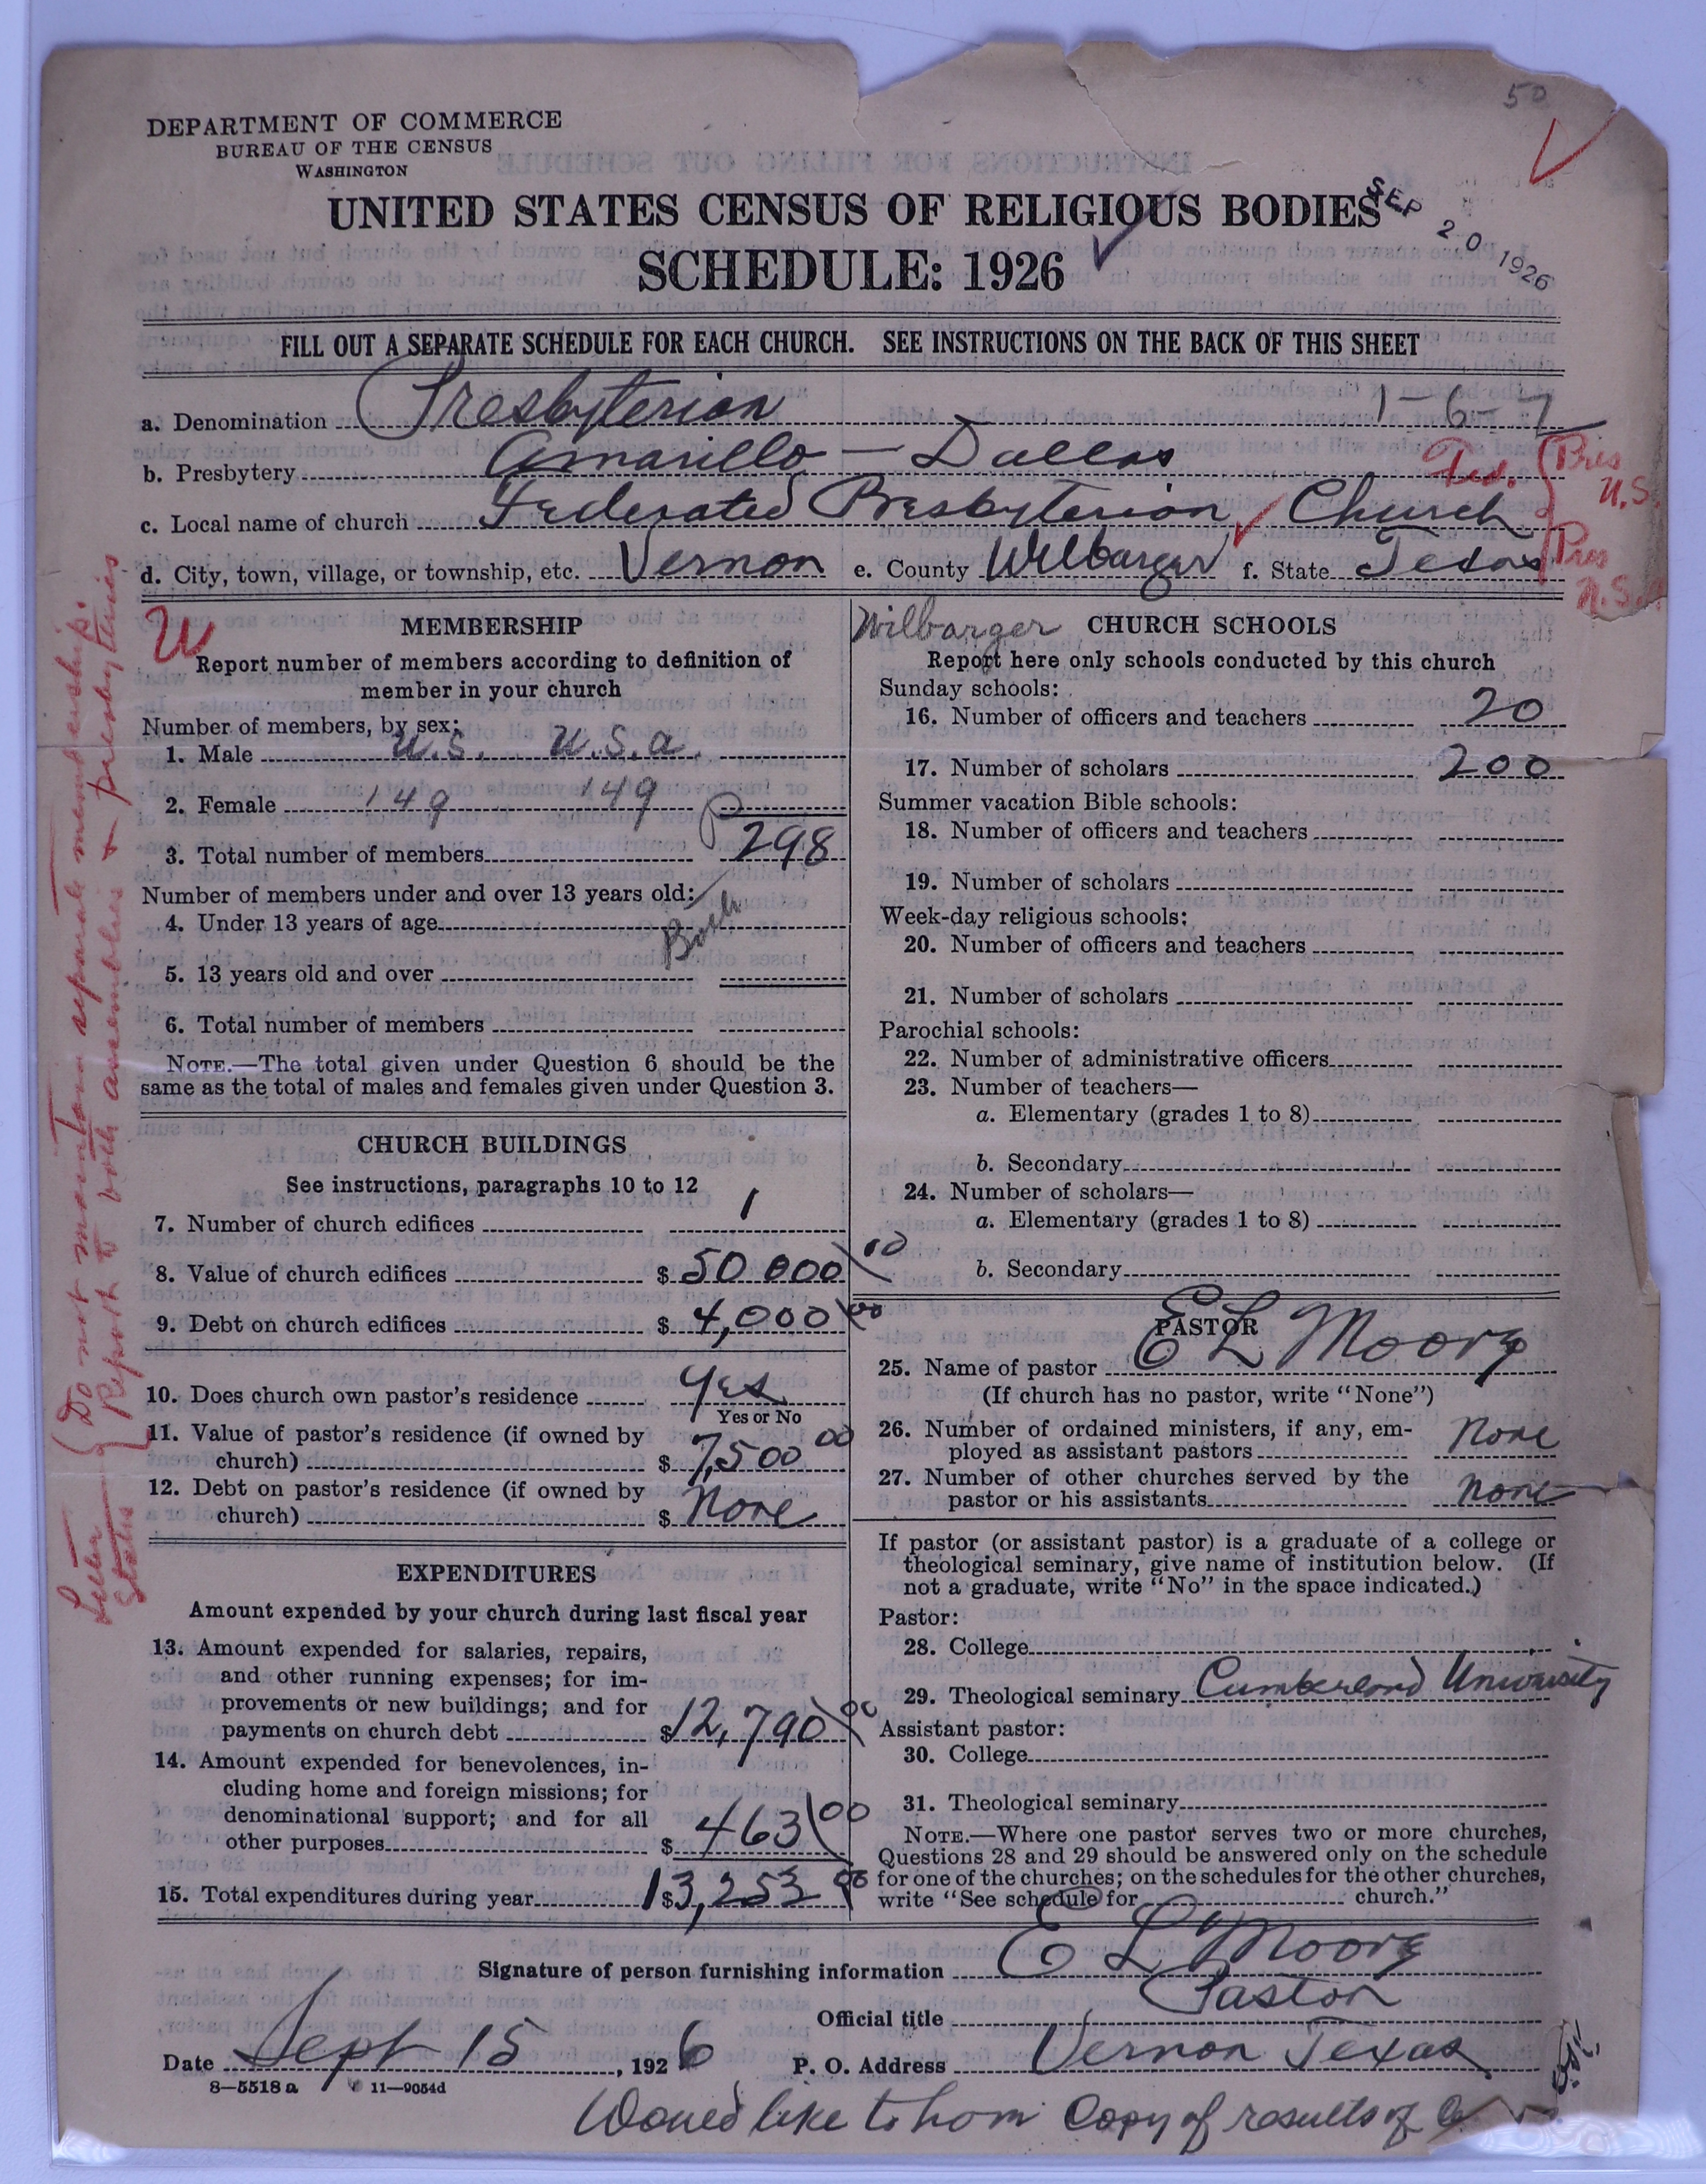 50
DEPARTMENT OF COMMERCE
BUREAU OF THE CENSUS
WASHINGTON
UNITED STATES CENSUS OF RELIGIOUS BODIES
SEP 20 1926
SCHEDULE: 1926
FILL OUT A SEPARATE SCHEDULE FOR EACH CHURCH. SEE INSTRUCTIONS ON THE BACK OF THIS SHEET
a. Denomination Presbyterian 1-6-7
b. Presbytery Amarillo - Dallas
Fed. Pres U.S.
Pres U.S.A.
c. Local name of church Federated Presbyterian Church
d. City, town, village, or township, etc. Vernon e. County Wilbarger f. State Texas
W
MEMBERSHIP
Report number of members according to definition of
member in your church
Number of members, by sex:
1. Male U.S. U.S.A.
2. Female 149 149
3. Total number of members 298
Number of members under and over 13 years old:
4. Under 13 years of age
Both
5. 13 years old and over
6. Total number of members
NOTE.—The total given under Question 6 should be the
same as the total of males and females given under Question 3.
CHURCH BUILDINGS
See instructions, paragraphs 10 to 12
7. Number of church edifices 1
8. Value of church edifices $ 50 000 00
9. Debt on church edifices $ 4,000 00
10. Does church own pastor's residence Yes
Yes or No
11. Value of pastor's residence (if owned by
church) $ 7,500 00
12. Debt on pastor's residence (if owned by
church) $ None
EXPENDITURES
Amount expended by your church during last fiscal year
13. Amount expended for salaries, repairs,
and other running expenses; for im-
provements or new buildings; and for
payments on church debt $ 12,790 00
14. Amount expended for benevolences, in-
cluding home and foreign missions; for
denominational support; and for all
other purposes $ 463 00
15. Total expenditures during year $ 13,253 00
Wilbarger
CHURCH SCHOOLS
Report here only schools conducted by this church
Sunday schools:
16. Number of officers and teachers 20
17. Number of scholars 200
Summer vacation Bible schools:
18. Number of officers and teachers
19. Number of scholars
Week-day religious schools:
20. Number of officers and teachers
21. Number of scholars
Parochial schools:
22. Number of administrative officers
23. Number of teachers—
a. Elementary (grades 1 to 8)
b. Secondary
24. Number of scholars—
a. Elementary (grades 1 to 8)
b. Secondary
PASTOR
25. Name of pastor E L Moore
(If church has no pastor, write "None")
26. Number of ordained ministers, if any, em-
ployed as assistant pastors None
27. Number of other churches served by the
pastor or his assistants None
If pastor (or assistant pastor) is a graduate of a college or
theological seminary, give name of institution below. (If
not a graduate, write "No" in the space indicated.)
Pastor:
28. College
29. Theological seminary Cumberland University
Assistant pastor:
30. College
31. Theological seminary
NOTE.—Where one pastor serves two or more churches,
Questions 28 and 29 should be answered only on the schedule
for one of the churches; on the schedules for the other churches,
write "See schedule for church."
Signature of person furnishing information E L Moore
Official title Pastor
Date Sept 15, 1926 P. O. Address Vernon Texas
8—5518 a 11—9054d
Would like to have Copy of results of
Letter states { Do not maintain separate membership.
Report to both assemblies & presbyteries